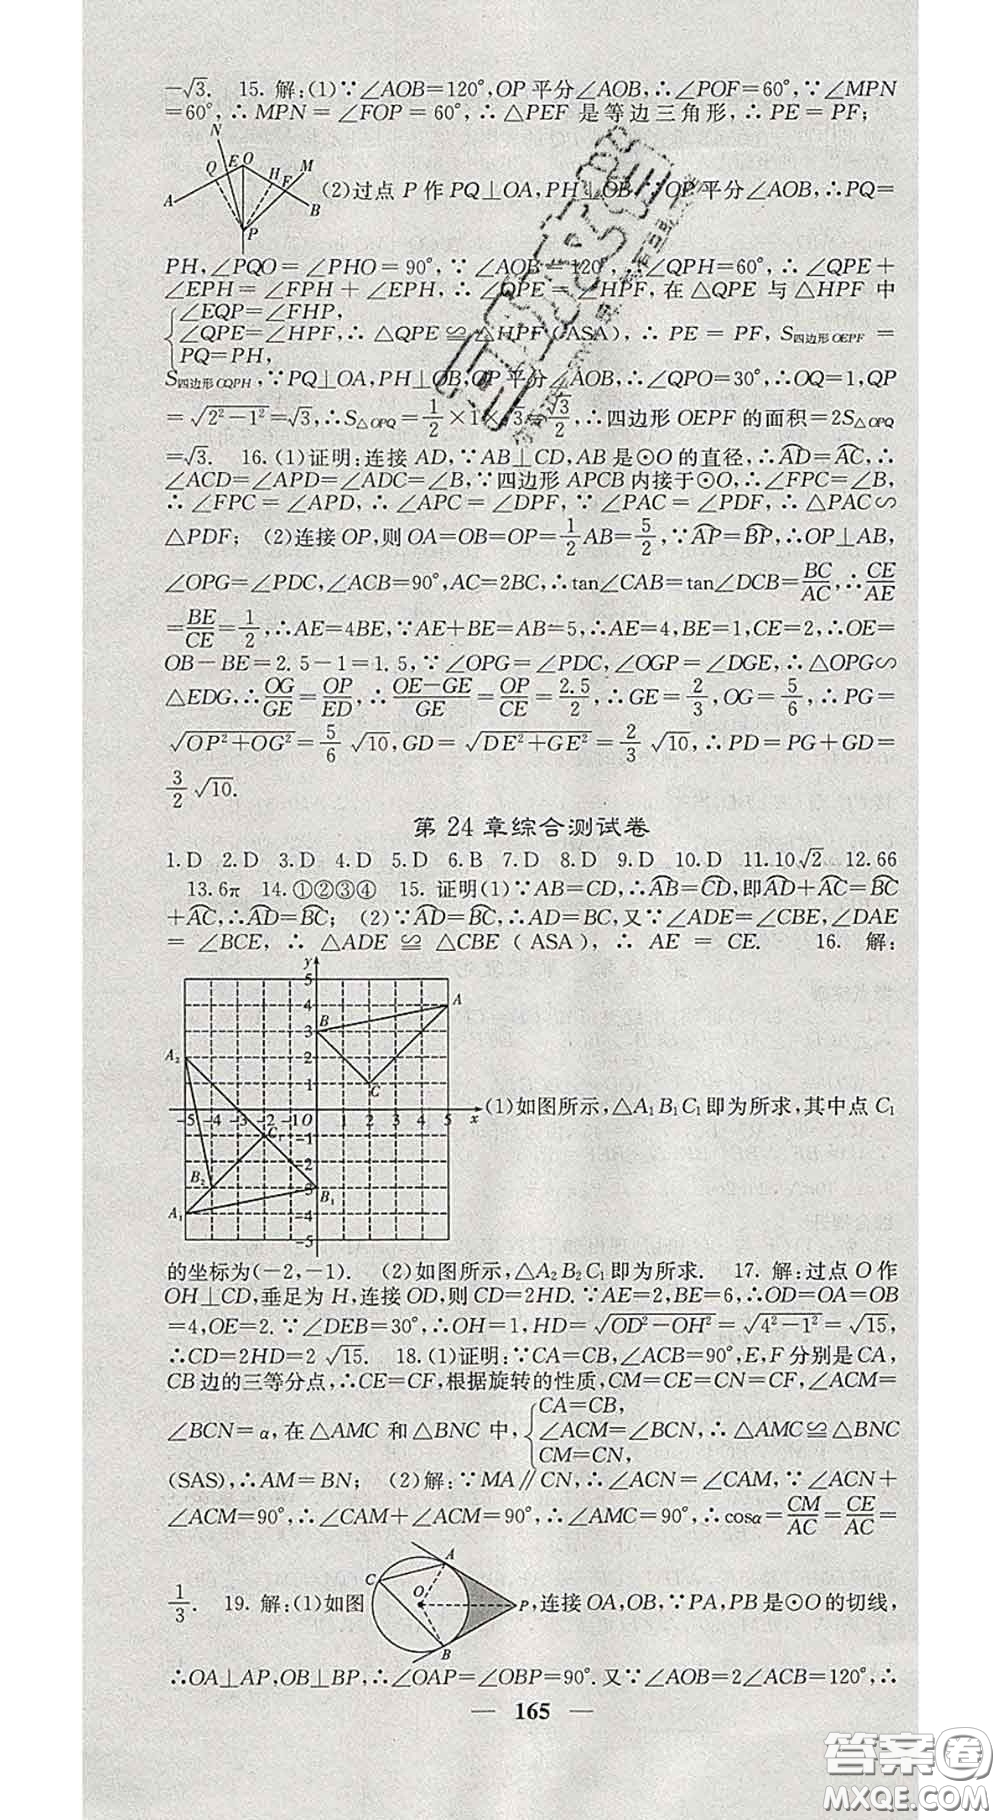 −√3. 15. 解:(1)∵∠AOB=120°,OP平分∠AOB,∴∠POF=60°,∵∠MPN
=60°,∴MPN=∠FOP=60°,∴△PEF是等边三角形,∴PE=PF;
N
Q E O H F M
A B
P
(2)过点P作PQ⊥OA,PH⊥OB,∵OP平分∠AOB,∴PQ=
PH,∠PQO=∠PHO=90°,∵∠AOB=120°,∴∠QPH=60°,∴∠QPE+
∠EPH=∠FPH+∠EPH,∴∠QPE=∠HPF,在△QPE与△HPF中
{∠EQP=∠FHP,
∠QPE=∠HPF,∴△QPE≌△HPF(ASA),∴PE=PF,S四边形OEPF=
PQ=PH,
S四边形OQPH,∵PQ⊥OA,PH⊥OB,OP平分∠AOB,∴∠QPO=30°,∴OQ=1,QP
=√(2²−1²)=√3,∴S△OPQ=1/2×1×√3=√3/2,∴四边形OEPF的面积=2S△OPQ
=√3. 16.(1)证明:连接AD,∵AB⊥CD,AB是⊙O的直径,∴A͡D=A͡C,∴
∠ACD=∠APD=∠ADC=∠B,∵四边形APCB内接于⊙O,∴∠FPC=∠B,
∴∠FPC=∠APD,∴∠APC=∠DPF,∵∠PAC=∠PDF,∴△PAC∽
△PDF; (2)连接OP,则OA=OB=OP=1/2AB=5/2,∵A͡P=B͡P,∴OP⊥AB,
∠OPG=∠PDC,∠ACB=90°,AC=2BC,∴tan∠CAB=tan∠DCB=BC/AC,∴CE/AE
=BE/CE=1/2,∴AE=4BE,∵AE+BE=AB=5,∴AE=4,BE=1,CE=2,∴OE=
OB−BE=2.5−1=1.5,∵∠OPG=∠PDC,∠OGP=∠DGE,∴△OPG∽
△EDG,∴OG/GE=OP/ED,∴(OE−GE)/GE=OP/CE=2.5/2,∴GE=2/3,OG=5/6,∴PG=
√(OP²+OG²)=5/6√10,GD=√(DE²+GE²)=2/3√10,∴PD=PG+GD=
3/2√10.
第24章综合测试卷
1.D 2.D 3.D 4.D 5.D 6.B 7.D 8.D 9.D 10.D 11.10√2 12.66
13.6π 14.①②③④ 15. 证明(1)∵AB=CD,∴A͡B=C͡D,即A͡D+A͡C=B͡C
+A͡C,∴A͡D=B͡C; (2)∵A͡D=B͡C,∴AD=BC,又∵∠ADE=∠CBE,∠DAE
=∠BCE,∴△ADE≌△CBE(ASA),∴AE=CE. 16. 解:
y
5
4 A
B
3
A₂ 2
1 C
−5 −4 −3 −2 −1 O 1 2 3 4 5 x
C₁ −1
−2
B₂ −3 B₁
A₁ −4
−5
(1)如图所示,△A₁B₁C₁即为所求,其中点C₁
的坐标为(−2,−1). (2)如图所示,△A₂B₂C₁即为所求. 17. 解:过点O作
OH⊥CD,垂足为H,连接OD,则CD=2HD.∵AE=2,BE=6,∴OD=OA=OB
=4,OE=2.∵∠DEB=30°,∴OH=1,HD=√(OD²−OH²)=√(4²−1²)=√15,
∴CD=2HD=2√15. 18.(1)证明:∵CA=CB,∠ACB=90°,E,F分别是CA,
CB边的三等分点,∴CE=CF,根据旋转的性质,CM=CE=CN=CF,∠ACM=
∠BCN=α,在△AMC和△BNC中,{CA=CB,
∠ACM=∠BCN,∴△AMC≌△BNC
CM=CN,
(SAS),∴AM=BN; (2)解:∵MA∥CN,∴∠ACN=∠CAM,∵∠ACN+
∠ACM=90°,∴∠CAM+∠ACM=90°,∴∠AMC=90°,∴cosα=CM/AC=CE/AC=
1/3. 19. 解:(1)如图
A
C
O
P
B
,连接OA,OB,∵PA,PB是⊙O的切线,
∴OA⊥AP,OB⊥BP,∴∠OAP=∠OBP=90°.又∵∠AOB=2∠ACB=120°,∴
— 165 —
答案圈
MXQE.COM